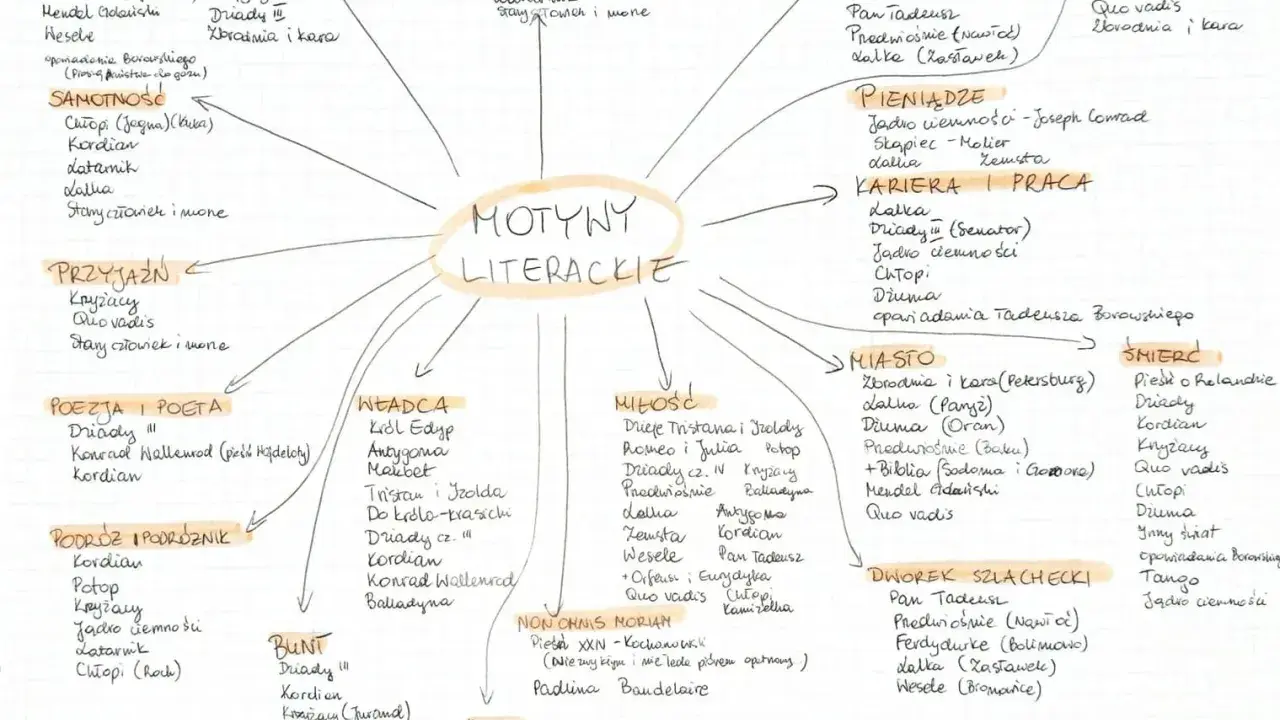 Mendel Gdański
Wesele
opowiadania Borowskiego
(Proszę państwa do gazu)
Dziady III
Zbrodnia i kara
Stary człowiek i morze
Pan Tadeusz
Przedwiośnie (Nawłoć)
Lalka (Zasławek)
Quo vadis
Zbrodnia i kara
MOTYWY
LITERACKIE
SAMOTNOŚĆ
Chłopi (Jagna) (Kuba)
Kordian
Latarnik
Lalka
Stary człowiek i morze
PRZYJAŹŃ
Krzyżacy
Quo vadis
Stary człowiek i morze
POEZJA I POETA
Dziady III
Konrad Wallenrod (pieśń Wajdeloty)
Kordian
PODRÓŻ I PODRÓŻNIK
Kordian
Potop
Krzyżacy
Jądro ciemności
Latarnik
Chłopi (Roch)
BUNT
Dziady III
Kordian
Krzyżacy (Jurand)
WŁADCA
Król Edyp
Antygona
Makbet
Tristan i Izolda
Do króla - Krasicki
Dziady cz. III
Kordian
Konrad Wallenrod
Balladyna
NON OMNIS MORIAR
Pieśń XXIV - Kochanowski
(Niezwykłym i nie leda piórem opatrzony)
Padlina Baudelaire
MIŁOŚĆ
Dzieje Tristana i Izoldy
Romeo i Julia Potop
Dziady cz. IV Krzyżacy
Przedwiośnie Balladyna
Lalka Antygona
Zemsta Kordian
Wesele Pan Tadeusz
+ Orfeusz i Eurydyka
Quo vadis Chłopi
Kamizelka
PIENIĄDZE
Jądro ciemności - Joseph Conrad
Skąpiec - Molier
Lalka Zemsta
KARIERA I PRACA
Lalka
Dziady III (Senator)
Jądro ciemności
Chłopi
Dżuma
opowiadania Tadeusza Borowskiego
MIASTO
Zbrodnia i kara (Petersburg)
Lalka (Paryż)
Dżuma (Oran)
Przedwiośnie (Baku)
+ Biblia (Sodoma i Gomora)
Mendel Gdański
Quo vadis
DWOREK SZLACHECKI
Pan Tadeusz
Przedwiośnie (Nawłoć)
Ferdydurke (Bolimowo)
Lalka (Zasławek)
Wesele (Bronowice)
ŚMIERĆ
Pieśń o Rolandzie
Dziady
Kordian
Krzyżacy
Quo vadis
Chłopi
Dżuma
Inny świat
opowiadania Borowskiego
Tango
Jądro ciemności